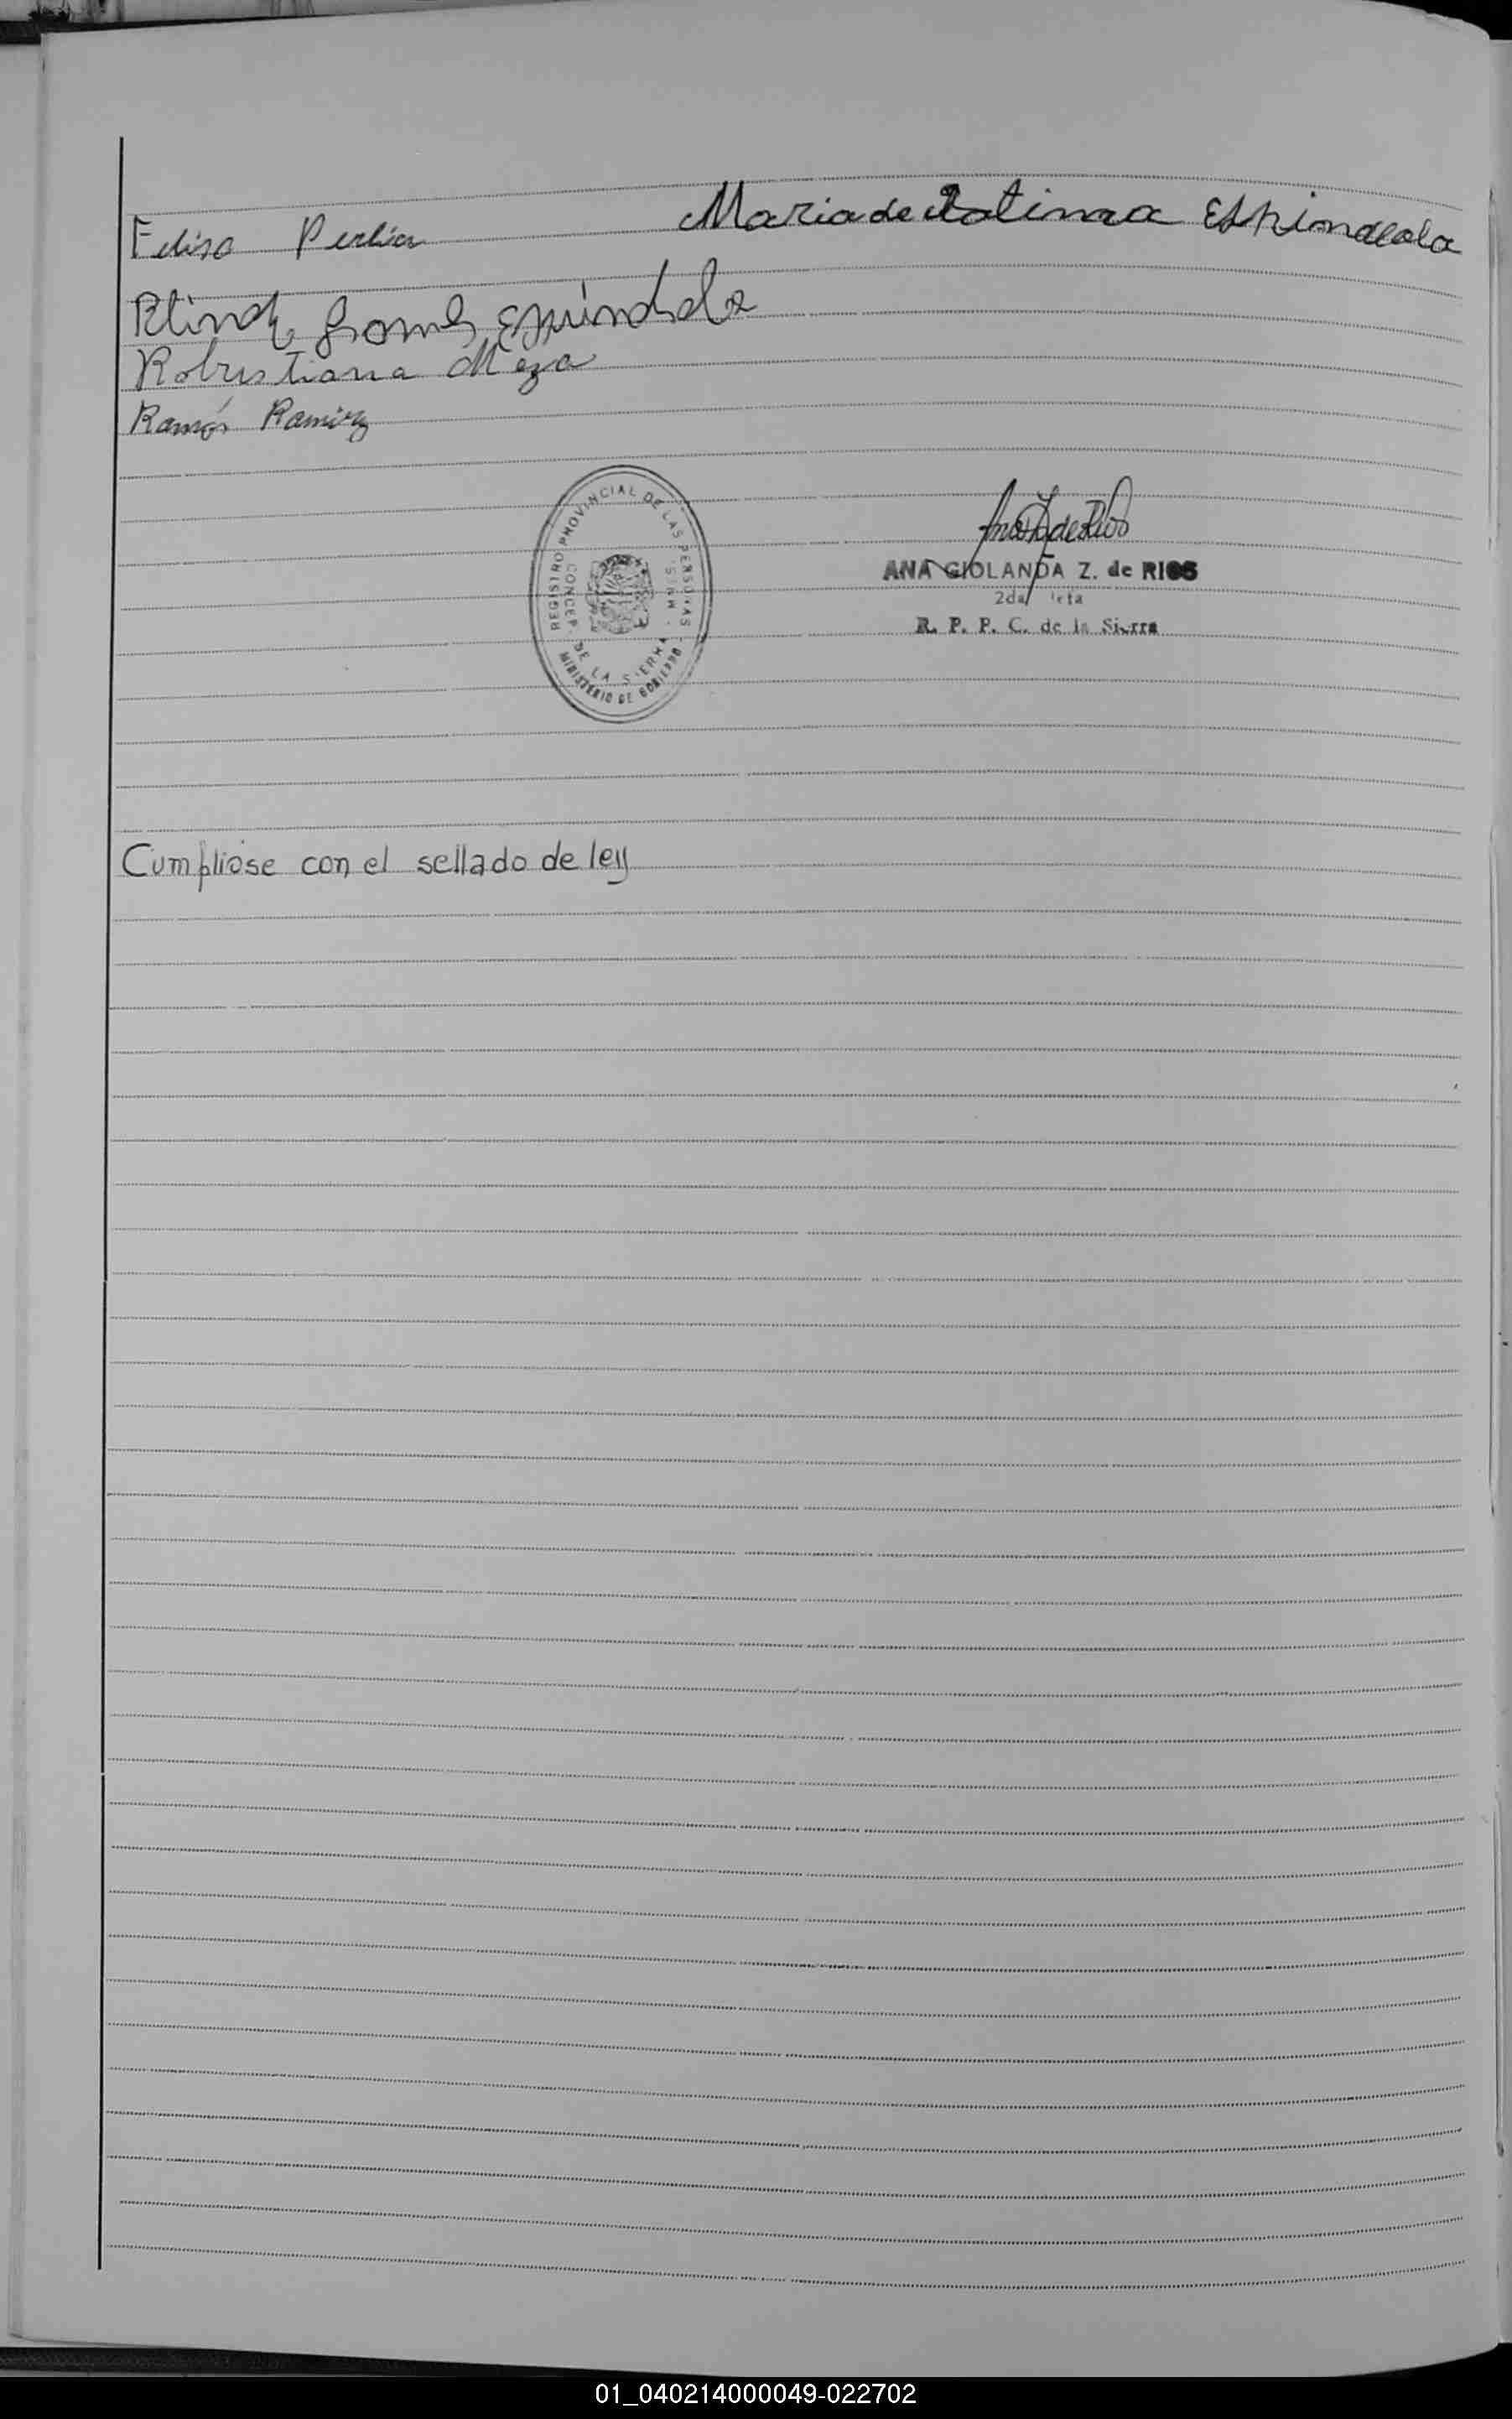 Felisa Maria de Fatima Espindola
Espindola
Robustiana Meza
Ramón Ramirez
REGISTRO PROVINCIAL DE LAS PERSONAS
CONCEP. DE LA SIERRA
MINISTERIO DE GOBIERNO
ANA GIOLANDA Z. de RIOS
2da
R. P. P. C. de la Sierra
Cumpliose con el sellado de ley
01_040214000049-022702